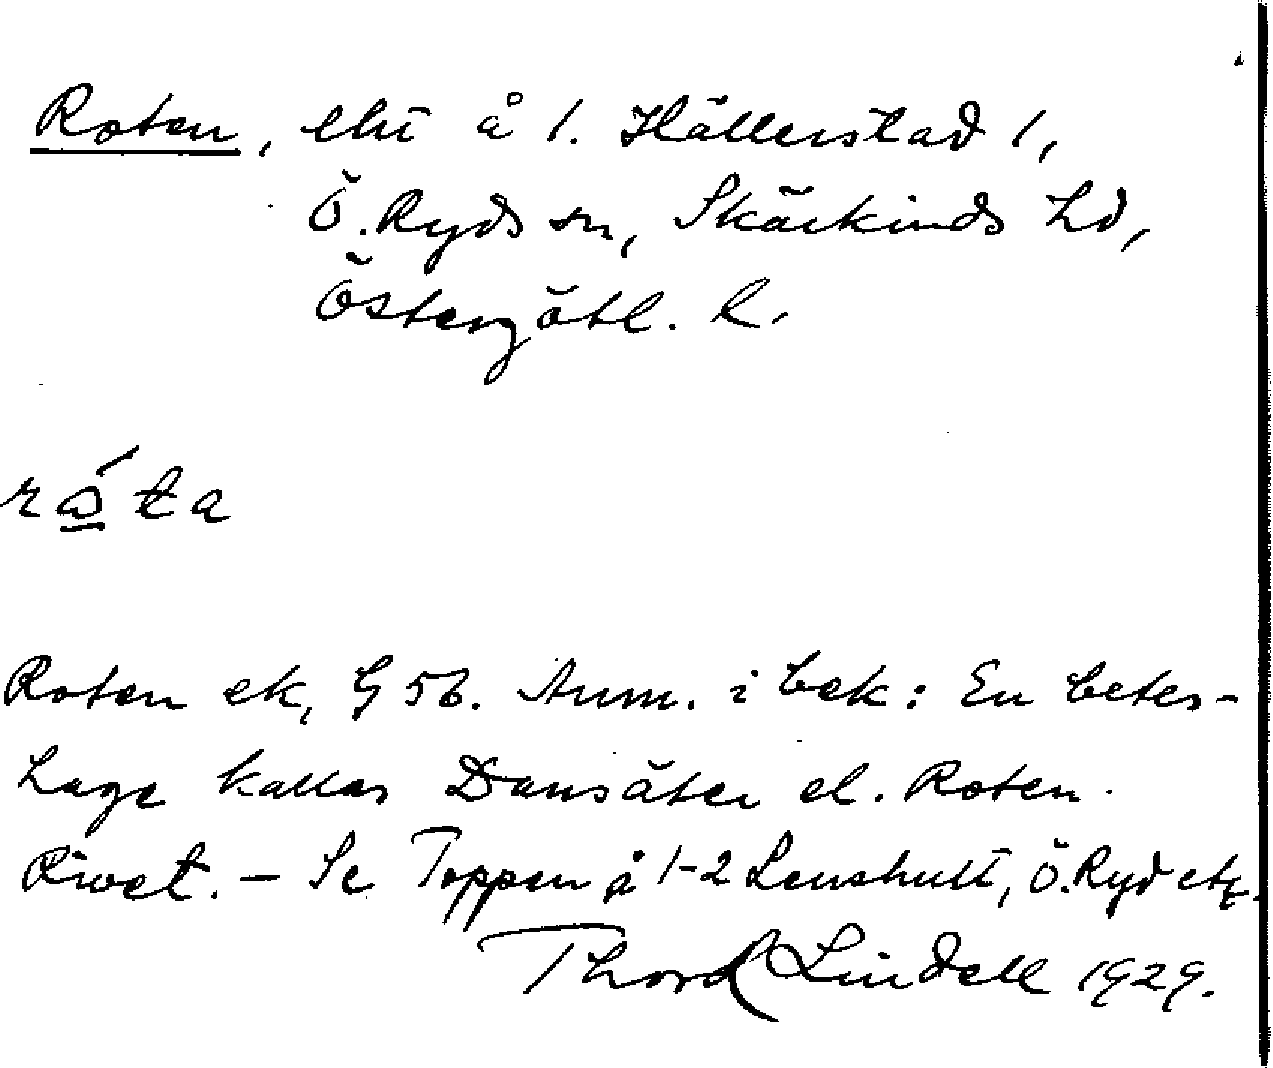 Roten, lht å 1. Hällerstad 1,
Ö. Ryds sn, Skärkinds hd,
Östergötl. l.
Roten ek, G 56. Anm. i bek: En betes-
hage kallas Dansäter el. Roten.
Rivet. - Se Toppen å 1-2 Lenshult, Ö. Ryd etc.
Thord Lindell 1929.